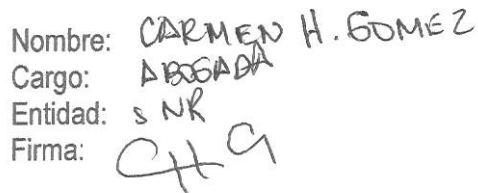 Nombre: CARMEN H. GOMEZ
Cargo: ABOGADA
Entidad: SNR
Firma: CHG